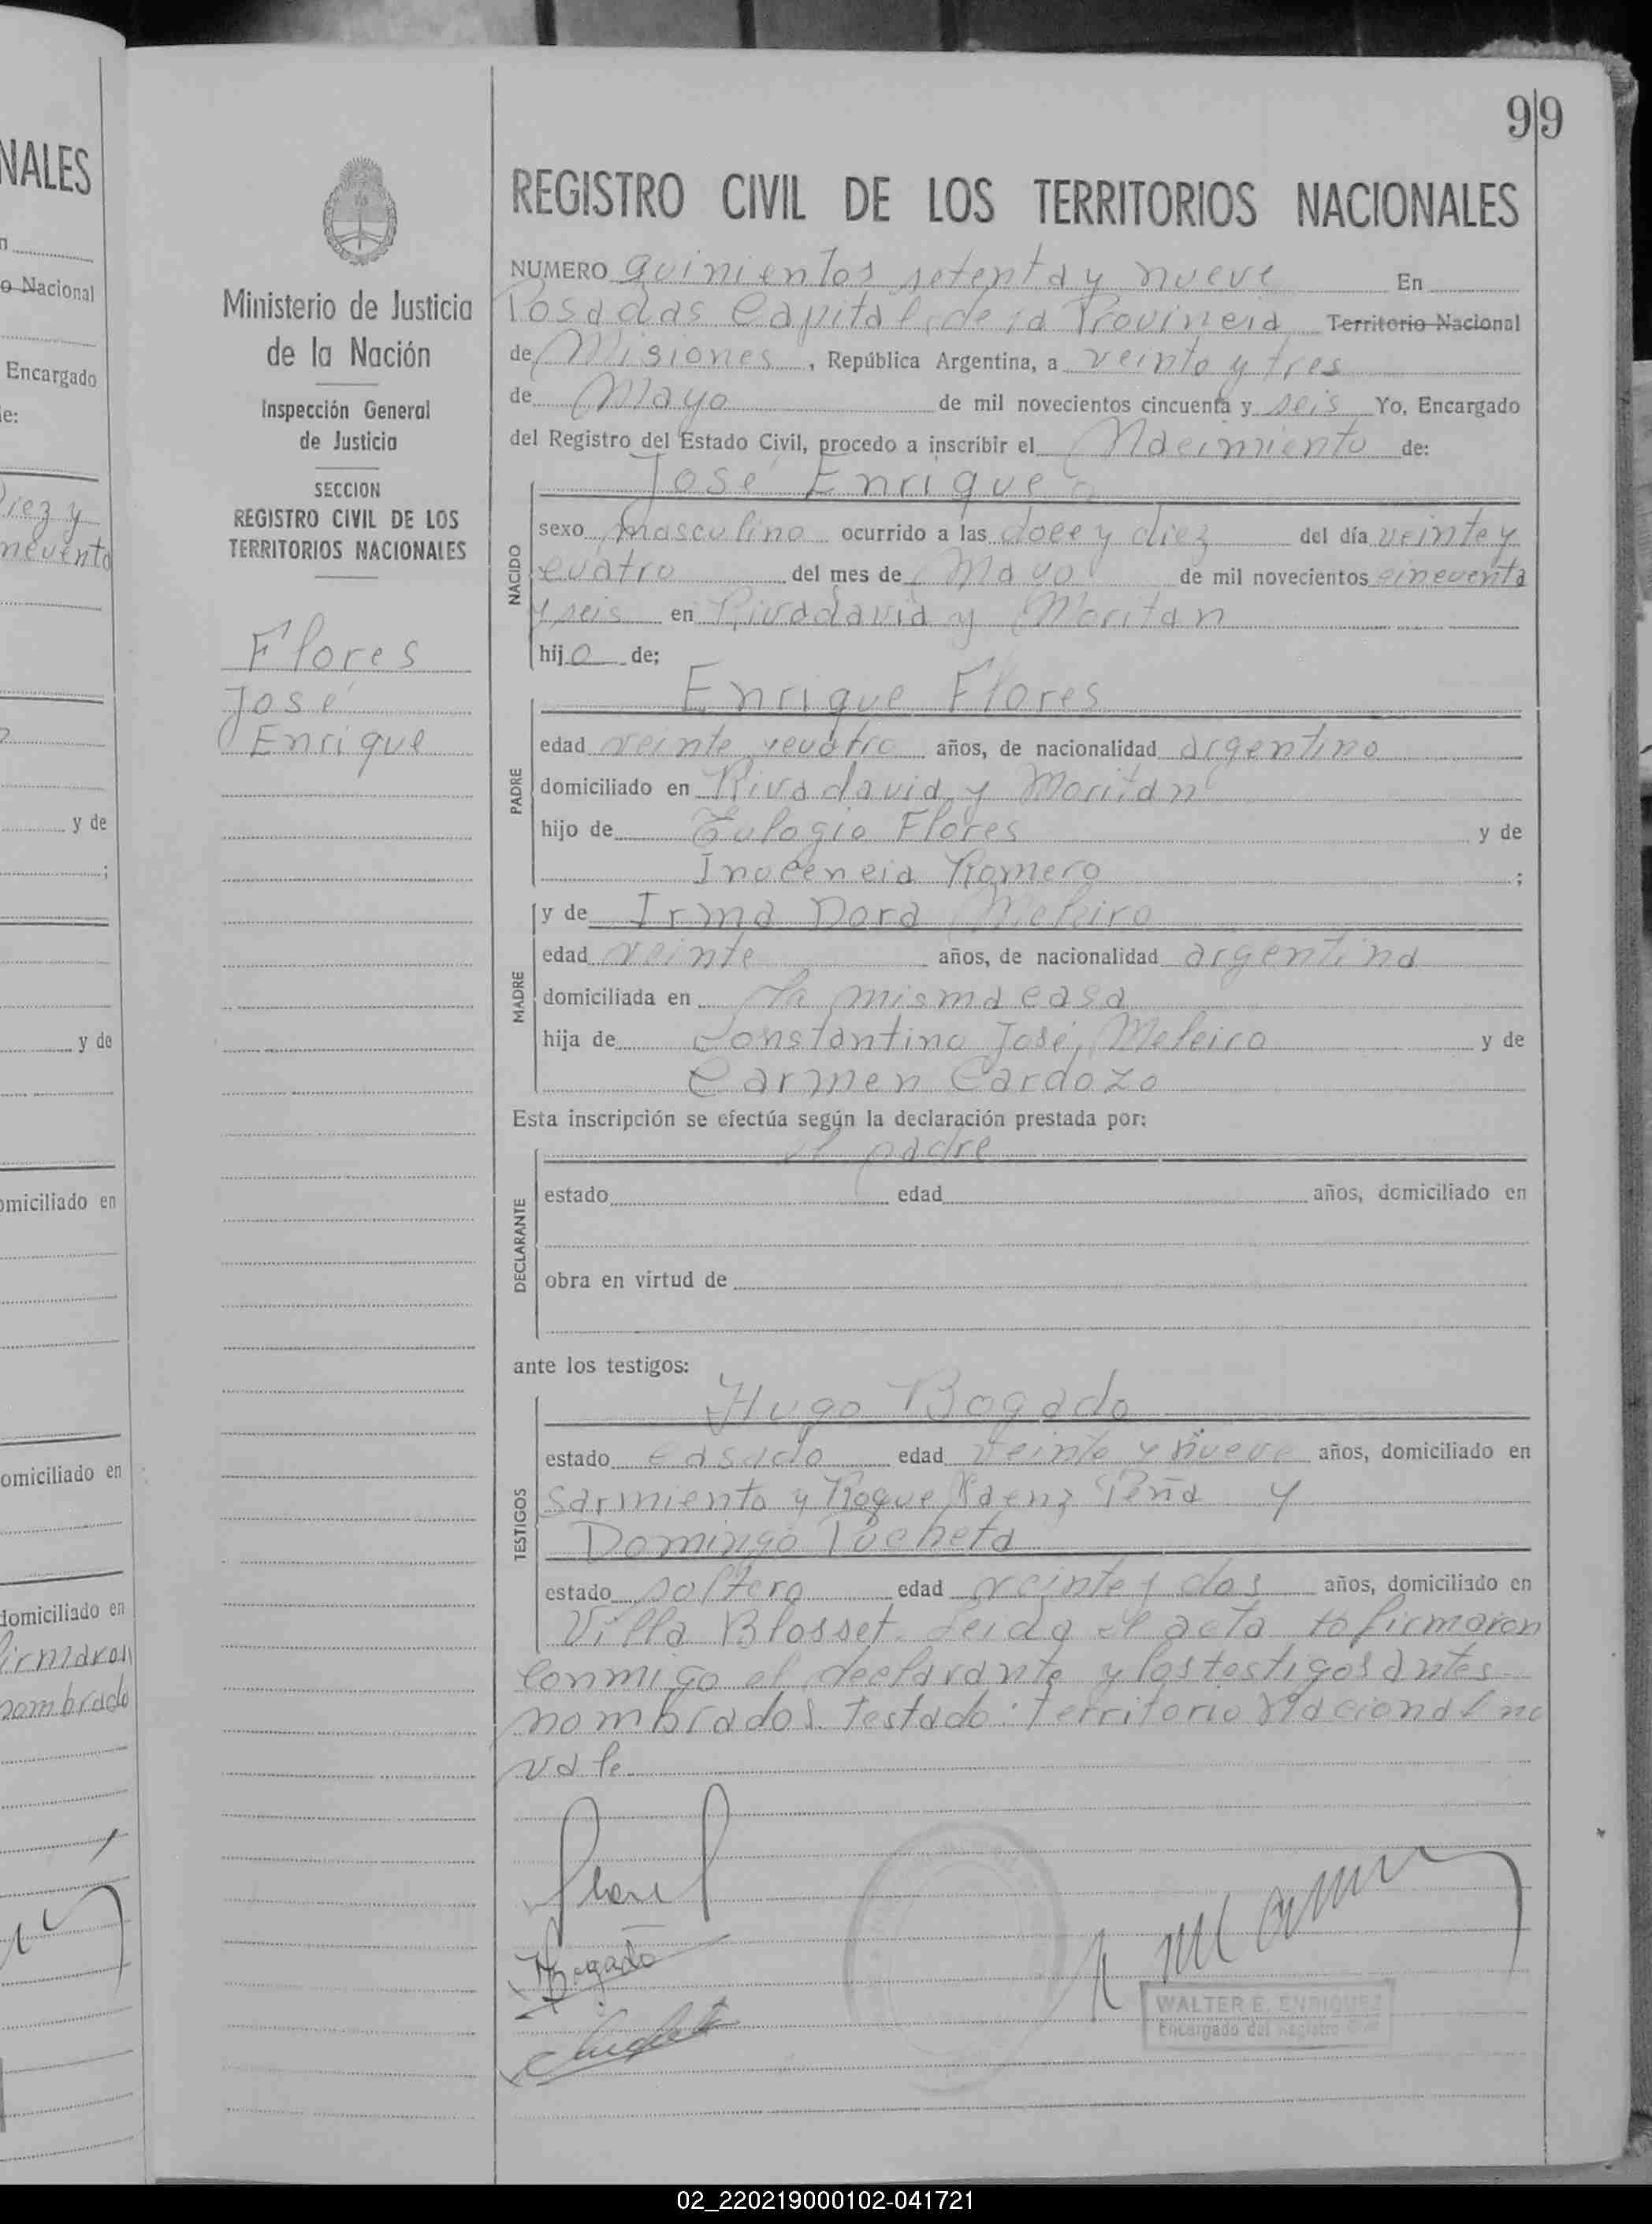 99
NALES
o Nacional
Encargado
e:
iez y
y de
y de
omiciliado en
omiciliado en
domiciliado en
firmaron
nombrado
Ministerio de Justicia
de la Nación
Inspección General
de Justicia
SECCION
REGISTRO CIVIL DE LOS
TERRITORIOS NACIONALES
Flores
José
Enrique
REGISTRO CIVIL DE LOS TERRITORIOS NACIONALES
NUMERO quinientos setenta y nueve En
Posadas Capital de la Provincia Territorio Nacional
de Misiones, República Argentina, a veinte y tres
de Mayo de mil novecientos cincuenta y seis Yo, Encargado
del Registro del Estado Civil, procedo a inscribir el Nacimiento de:
José Enrique
NACIDO
sexo masculino ocurrido a las doce y diez del día veinte y
cuatro del mes de Mayo de mil novecientos cincuenta
y seis en Rivadavia y Moritan
hijo de;
Enrique Flores
PADRE
edad veinte y cuatro años, de nacionalidad argentino
domiciliado en Rivadavia y Moritan
hijo de Eulogio Flores y de
Inocencia Romero ;
y de Irma Dora Meleiro
MADRE
edad veinte años, de nacionalidad argentina
domiciliada en la misma casa
hija de Constantino José Meleiro y de
Carmen Cardozo
Esta inscripción se efectúa según la declaración prestada por:
el padre
DECLARANTE
estado edad años, domiciliado en
obra en virtud de
ante los testigos:
Hugo Bogado
TESTIGOS
estado casado edad veinte y nueve años, domiciliado en
Sarmiento y Roque Saenz Peña y
Domingo Pucheta
estado soltero edad veinte y dos años, domiciliado en
Villa Blosset. Leida el acta la firmaron
conmigo el declarante y los testigos antes
nombrados. Testado: Territorio Nacional no
vale
Bogado
WALTER E. ENRIQUEZ
Encargado del Registro Civil
02_220219000102-041721